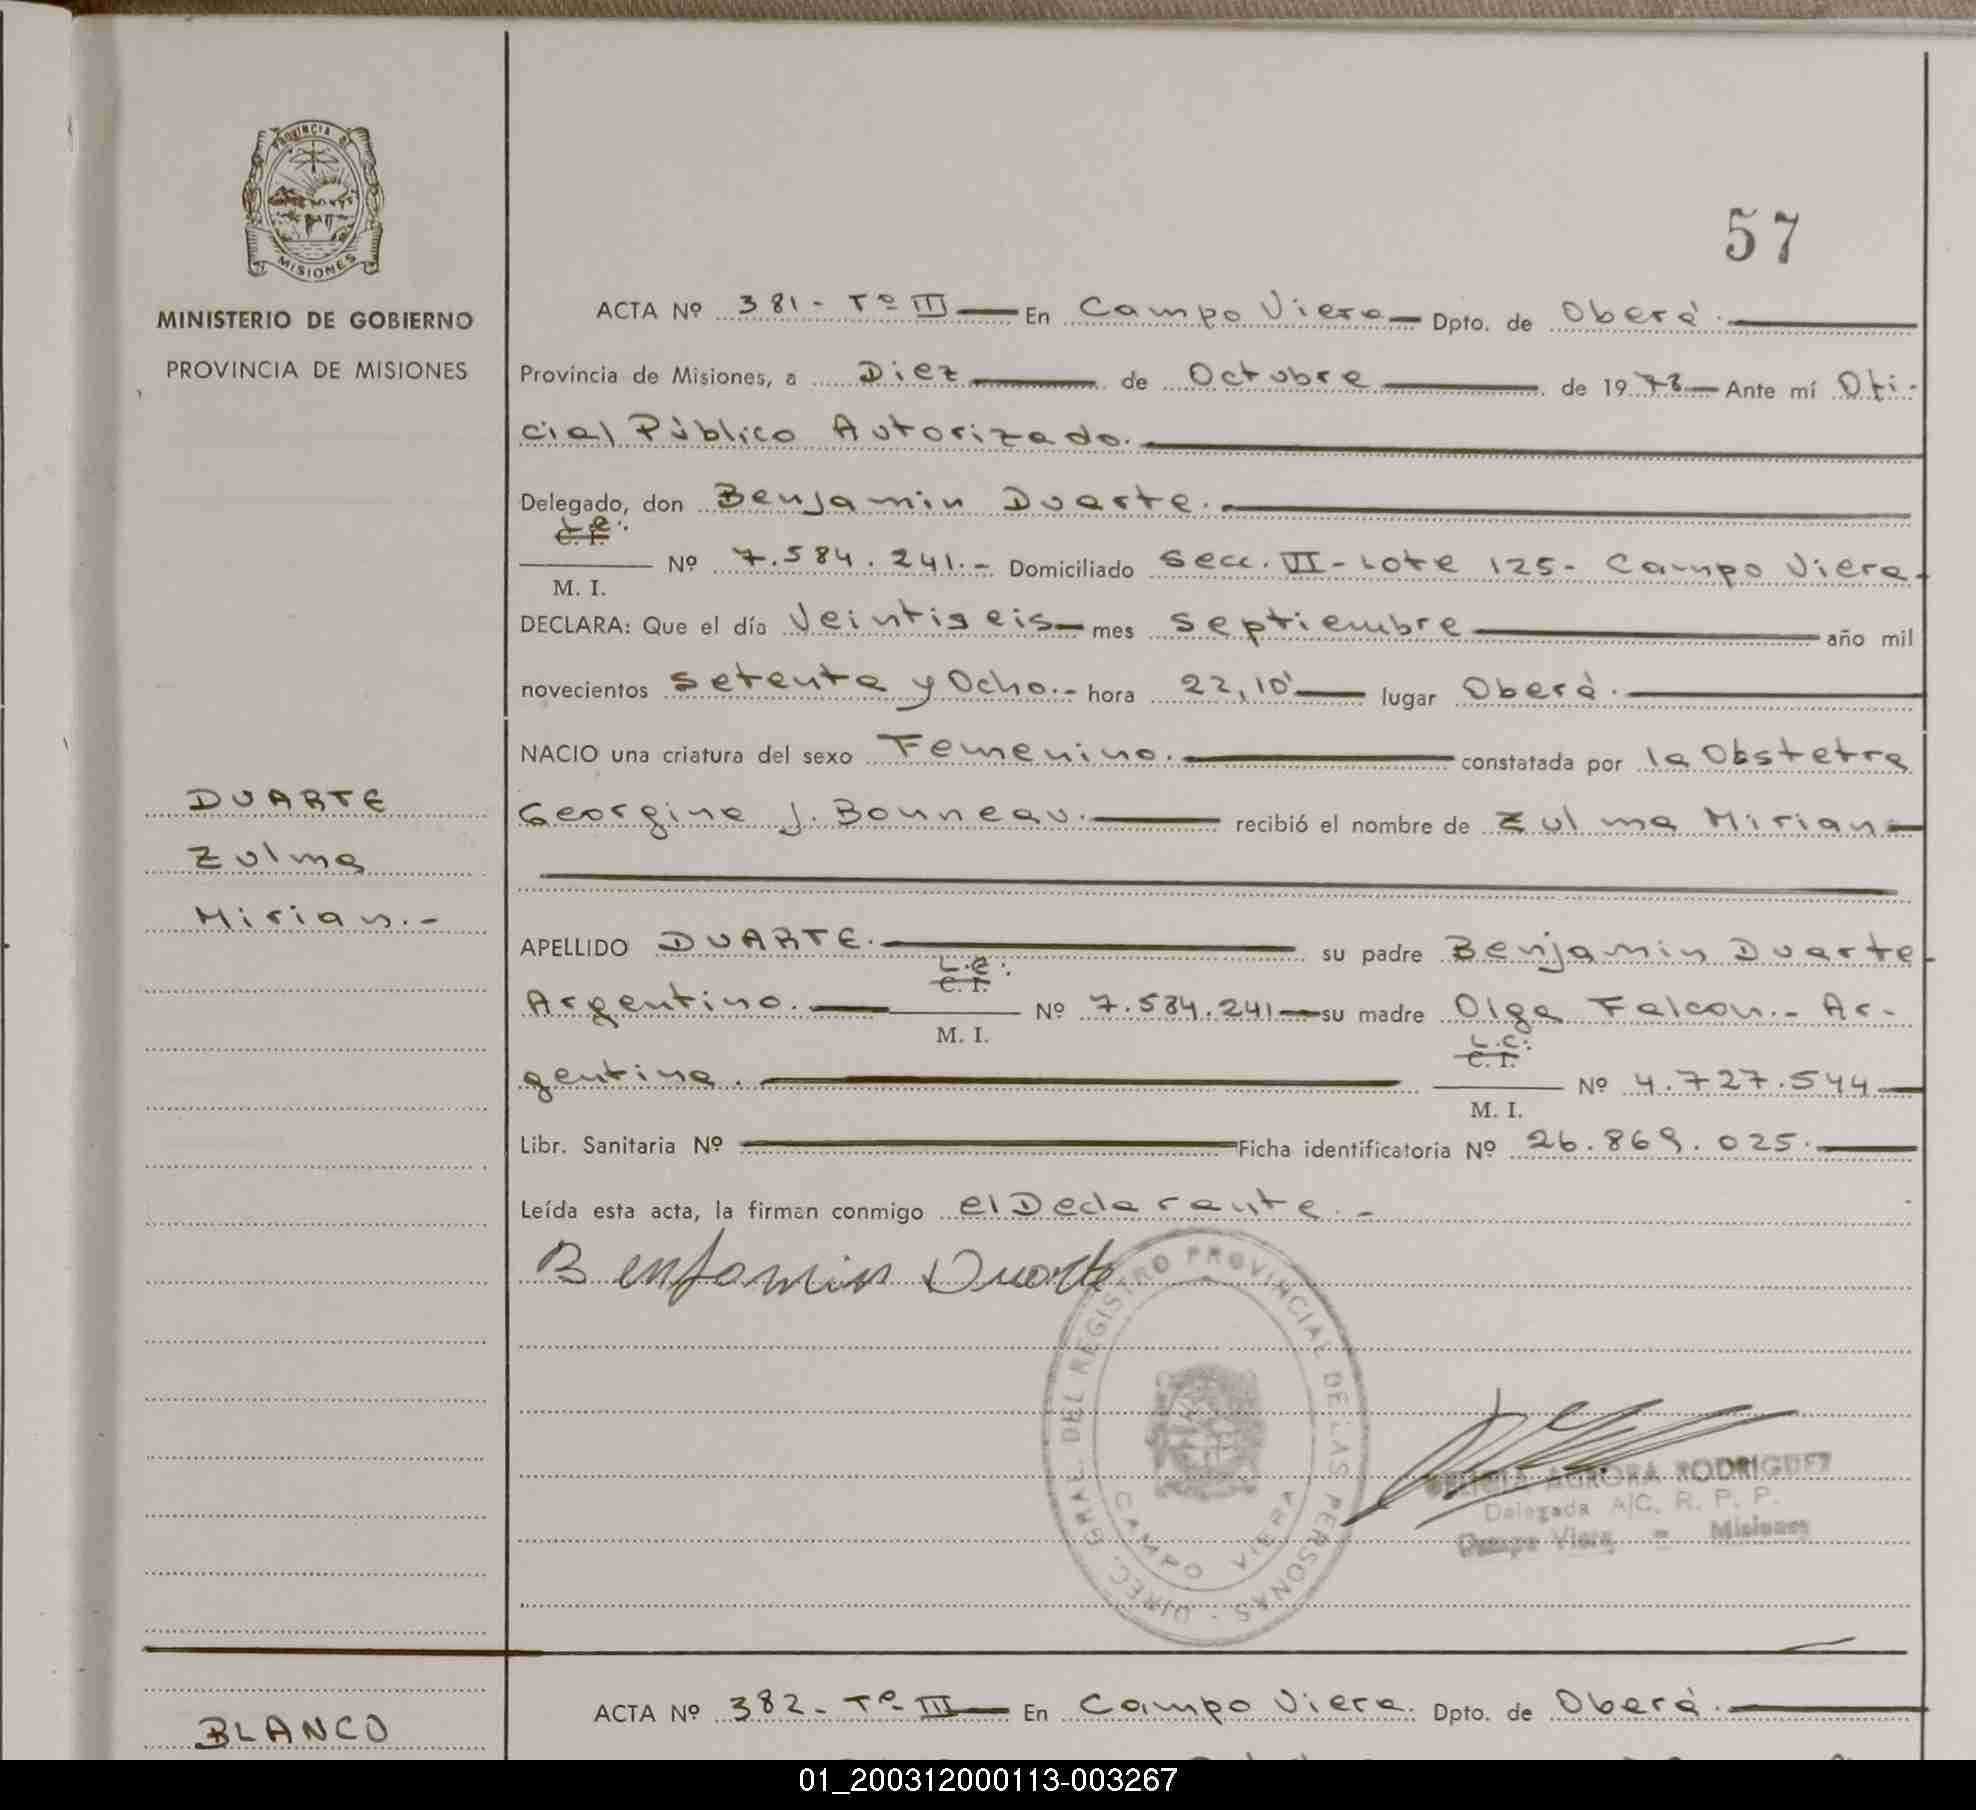 PROVINCIA DE
MISIONES
MINISTERIO DE GOBIERNO
PROVINCIA DE MISIONES
57
ACTA Nº 381- Tº III En Campo Viera Dpto. de Oberá.
Provincia de Misiones, a Diez de Octubre de 1978 Ante mí Ofi-
cial Público Autorizado.
Delegado, don Benjamin Duarte.
L.E.:
C. I.
Nº 7.584.241.- Domiciliado Secc. VII - Lote 125- Campo Viera.
M. I.
DECLARA: Que el día Veintiseis mes Septiembre año mil
novecientos Setenta y Ocho.- hora 22,10' lugar Oberá.
NACIO una criatura del sexo Femenino. constatada por la Obstetra
Georgina J. Bonneau. recibió el nombre de Zulma Mirian
DUARTE
Zulma
Mirian.-
APELLIDO DUARTE. su padre Benjamin Duarte
L.E.:
C. I.
Argentino. Nº 7.584.241 su madre Olga Falcon.- Ar-
M. I.
L.C.:
C. I.
gentina. Nº 4.727.544
M. I.
Libr. Sanitaria Nº Ficha identificatoria Nº 26.869.025.
Leída esta acta, la firman conmigo el Declarante.-
Benjamin Duarte
DIREC. GRAL. DEL REGISTRO PROVINCIAL DE LAS PERSONAS -
CAMPO VIERA
AURORA RODRIGUEZ
Delegada A/C. R. P. P.
Campo Viera - Misiones
ACTA Nº 382- Tº III En Campo Viera. Dpto. de Oberá.
BLANCO
01_200312000113-003267